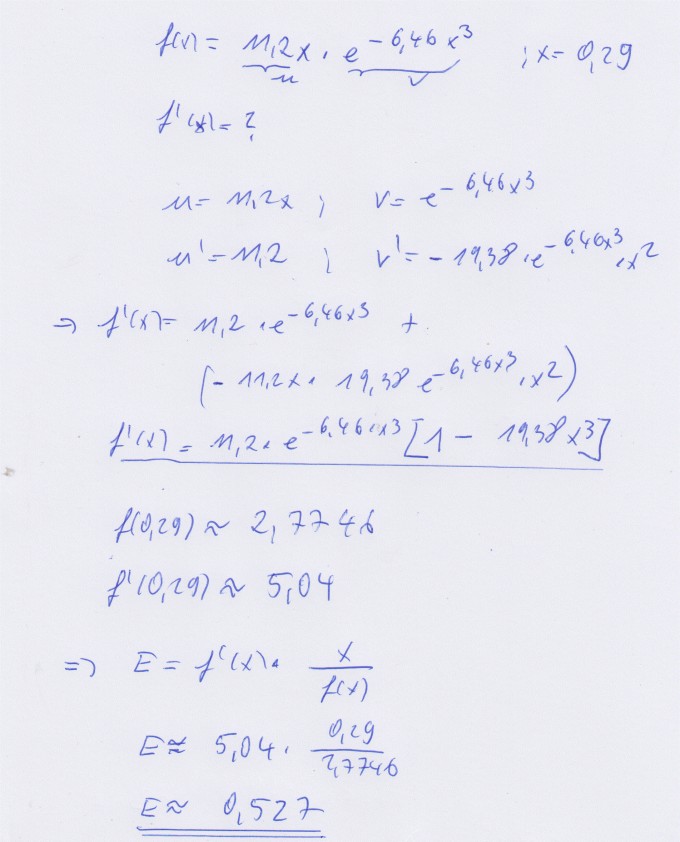 f(x) = 11,2x · e^(-6,46x^3) ; x = 0,29
u v
f'(x) = ?
u = 11,2x ; v = e^(-6,46x^3)
u' = 11,2 ; v' = - 19,38 · e^(-6,46x^3) · x^2
⇒ f'(x) = 11,2 · e^(-6,46x^3) +
(- 11,2x · 19,38 e^(-6,46x^3) · x^2)
f'(x) = 11,2 · e^(-6,46·x^3) [1 - 19,38x^3]
f(0,29) ≈ 2,7746
f'(0,29) ≈ 5,04
⇒ E = f'(x) · x/f(x)
E ≈ 5,04 · 0,29/2,7746
E ≈ 0,527